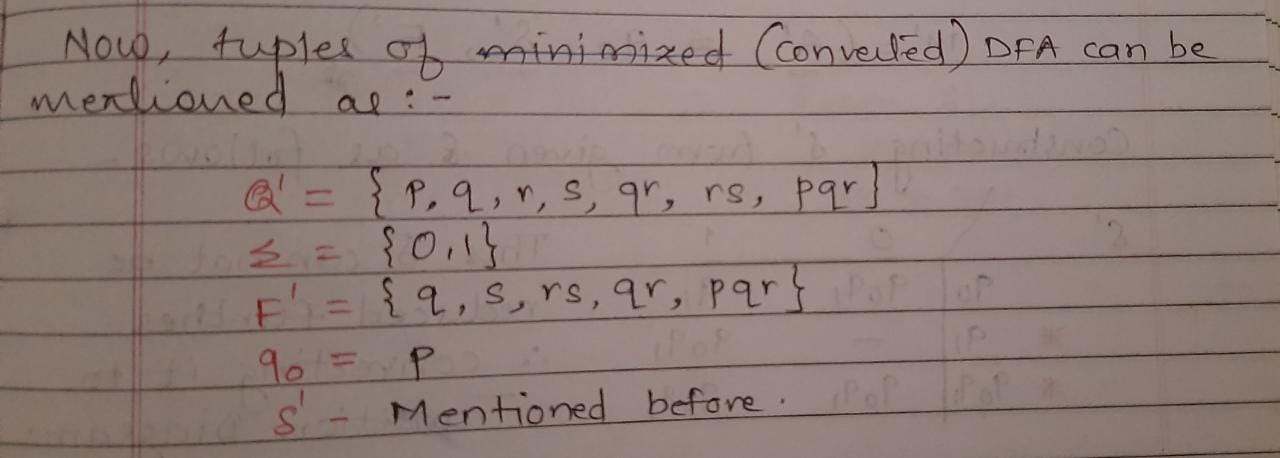 Now, tuples of minimized (Converted) DFA can be
mentioned as :-
Q' = { P, q, r, s, qr, rs, pqr }
Σ = {0,1}
F' = { q, s, rs, qr, pqr }
q0 = P
δ' - Mentioned before.